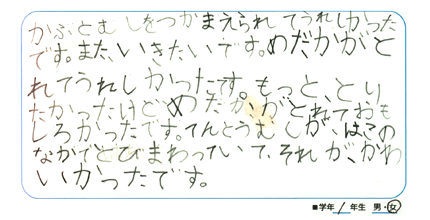 かぶとむしをつかまえられてうれしかった
です。また、いきたいです。めだかがと
れてうれしかったです。もっと、とり
たかったけどめだかががとれておも
しろかったです。てんとうむしが、はこの
なかでとびまわっていて、それが、かわ
いかったです。
■学年 / 年生 男・女